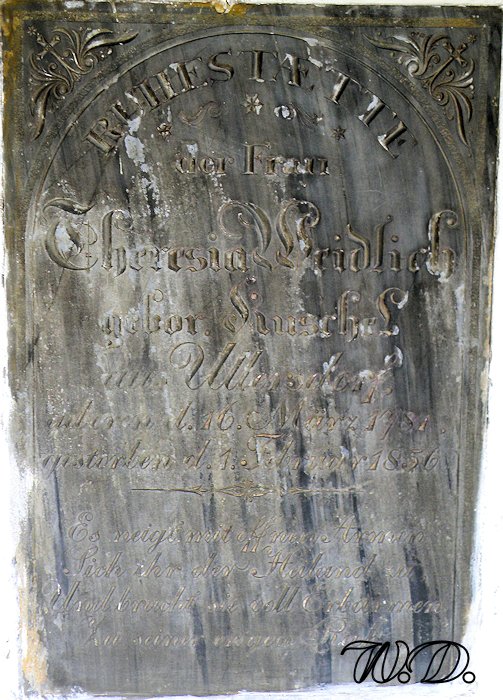 RUHESTÆTTE
der Frau
Theresia Weidlich
gebor. Sinschel
aus Ullersdorf,
geboren d. 16. März 1781.
gestorben d. 1. Februar 1856
Es neigt mit offnen Armen
Sich ihr der Heiland zu
Und bracht sie voll Erbarmen
Zu seiner
W.D.